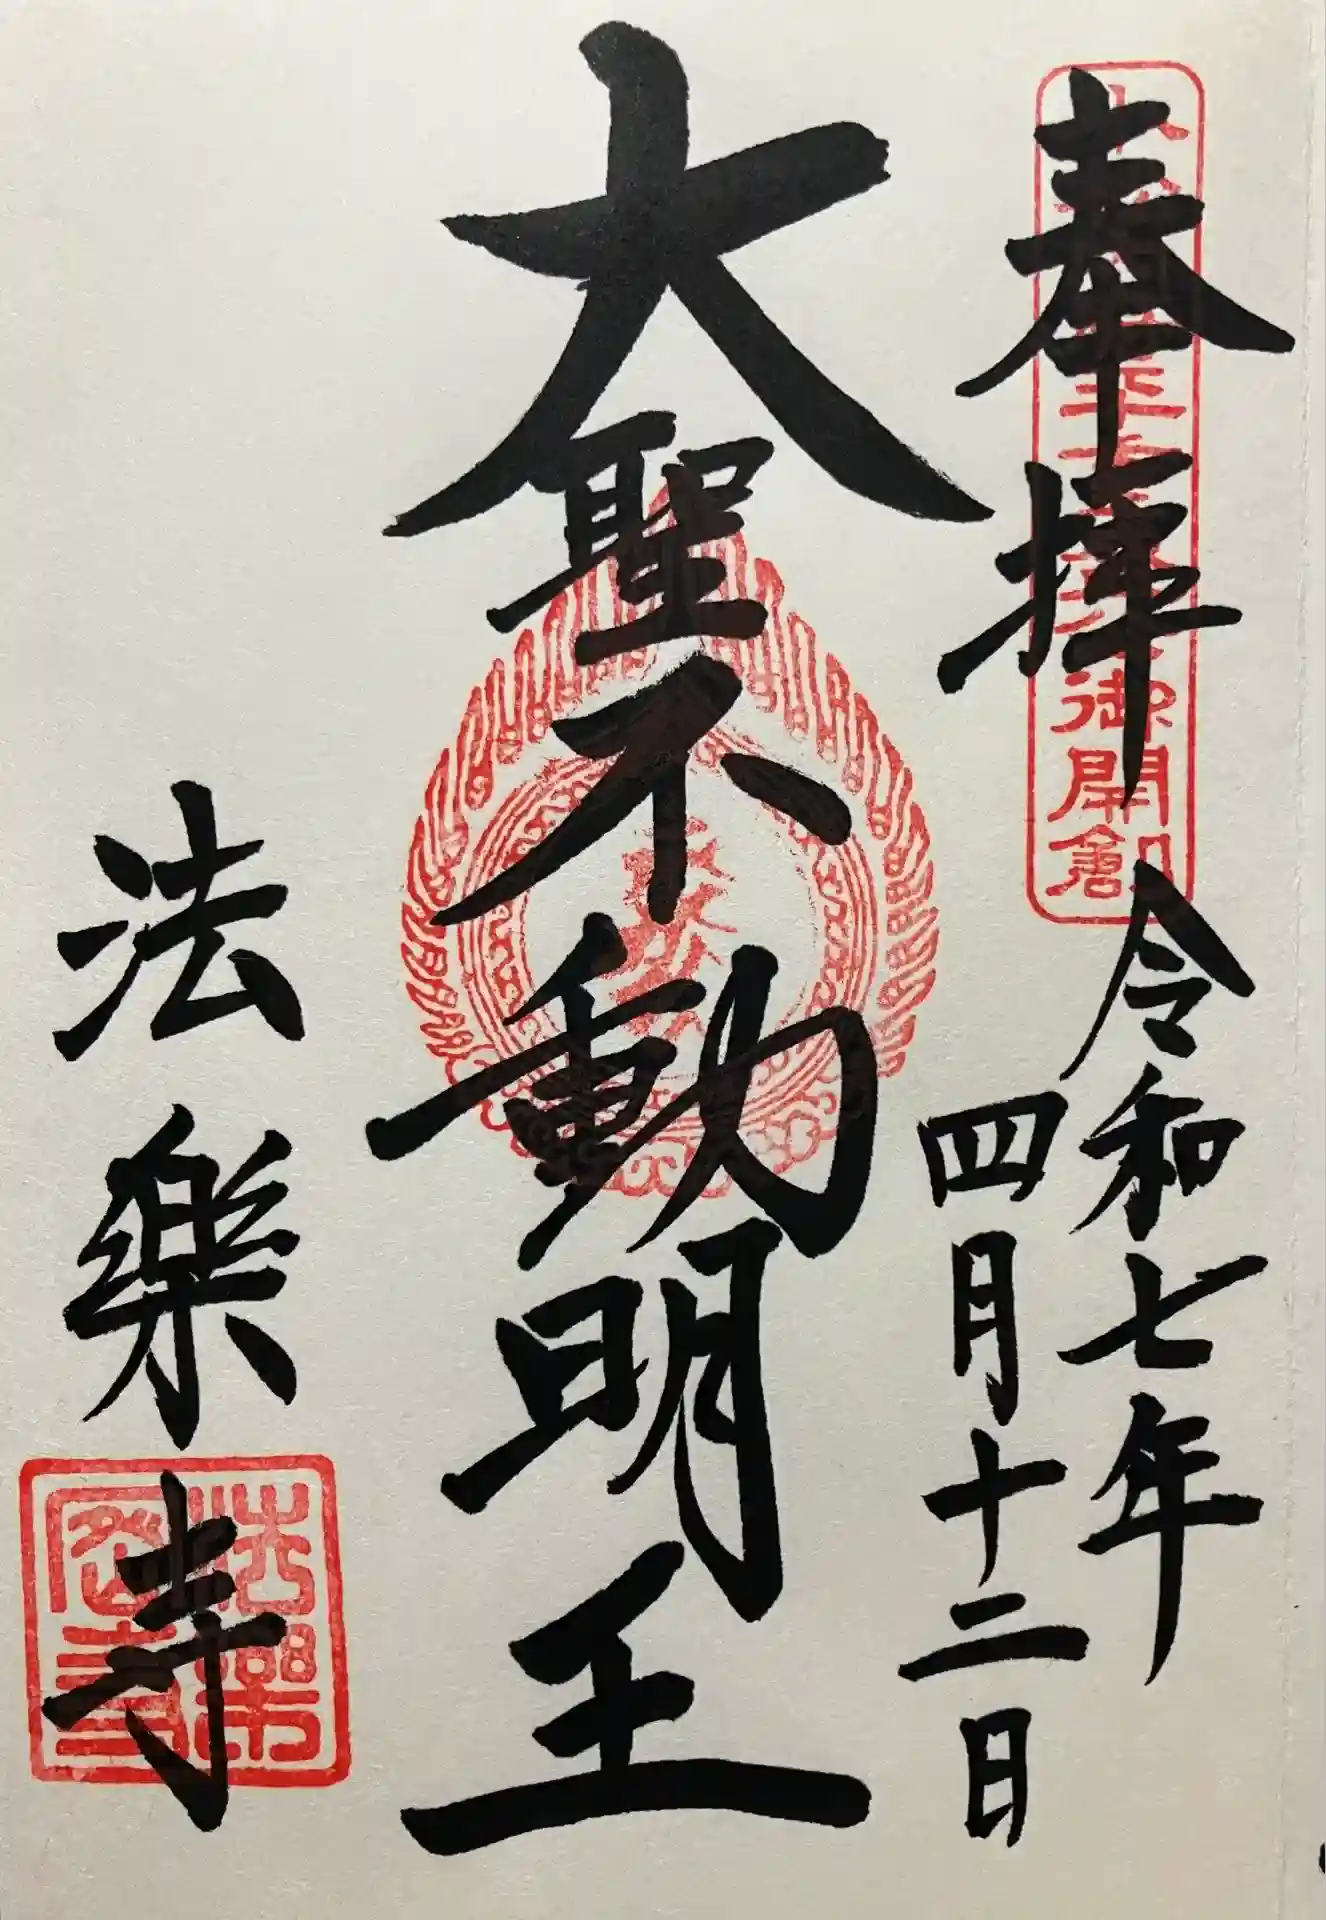 奉拝
令和七年
四月十二日
大聖不動明王
法樂寺
御開創